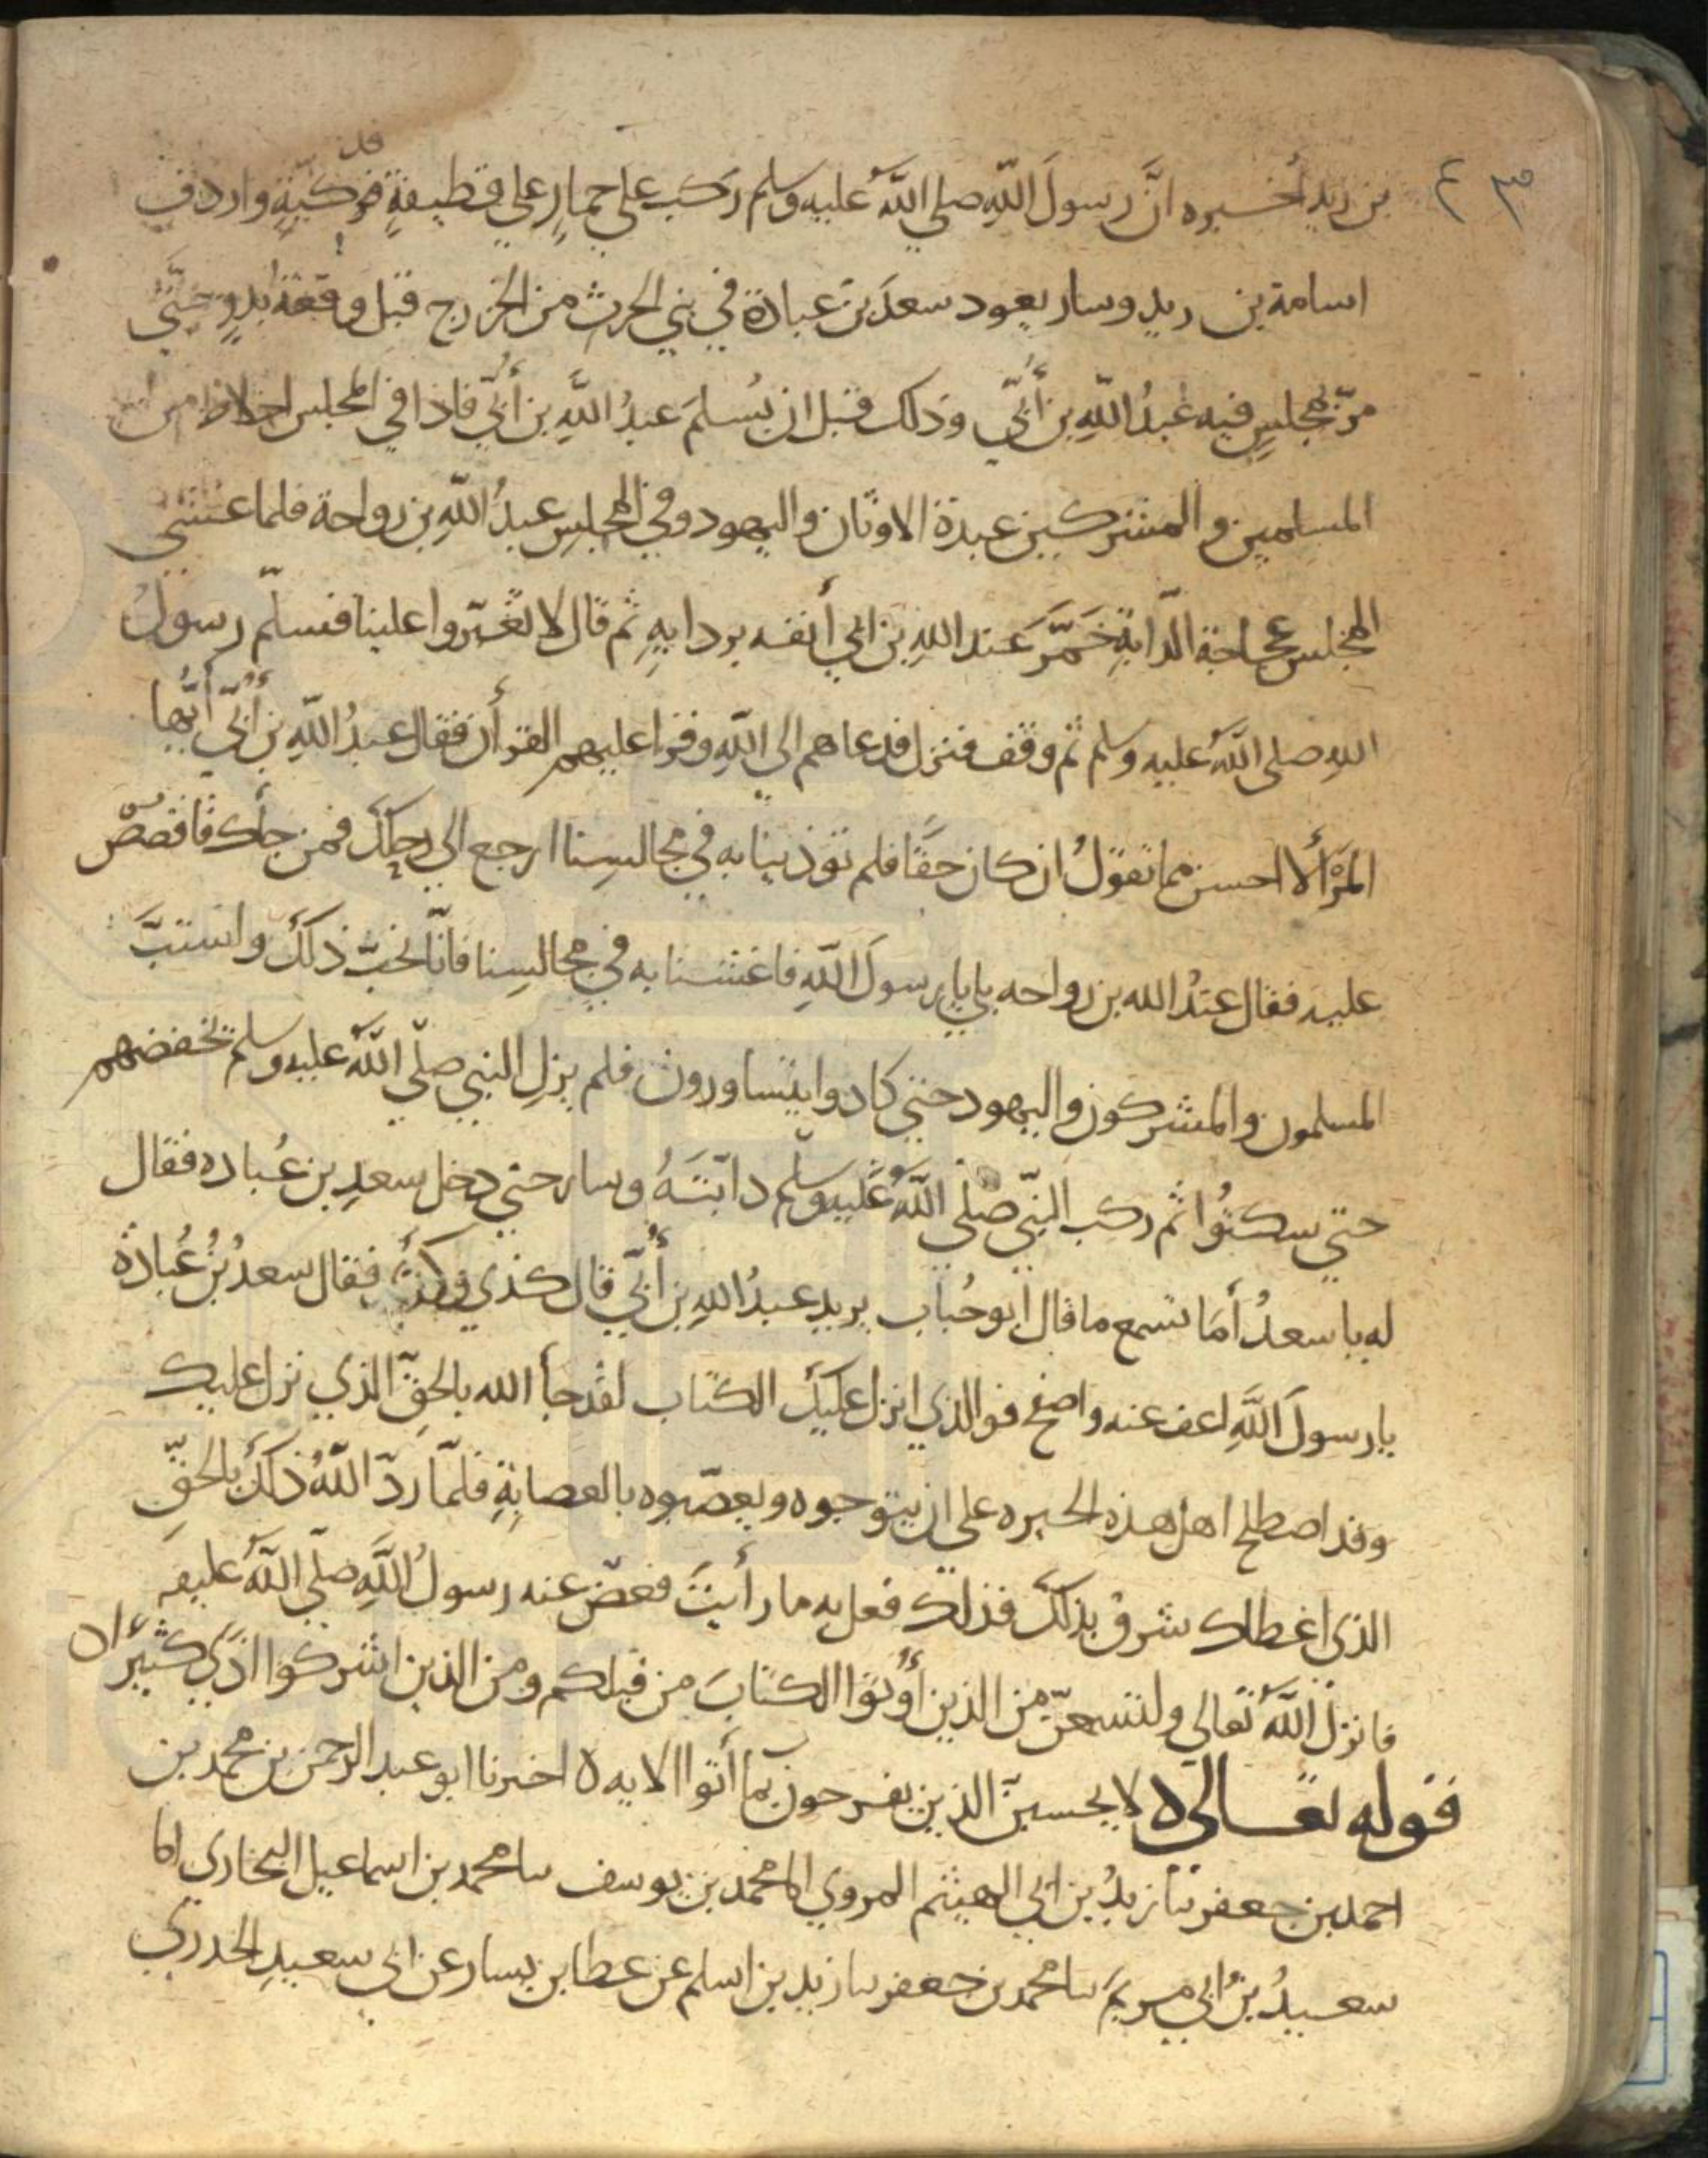 بن زيد أخبره انَّ رسولَ اللّٰهِ صلي اللّٰهُ عليه وسلم ركب علي حمارٍ علي قطيفةٍ فدكيّةٍ واردف
اسامة بن زيد وسار يعود سعدَ بنَ عبادة في بني الحرث من الخزرج قبل وقعة بدرٍ حتّي
مرّ بمجلسٍ فيه عبدُ اللّٰهِ بن أُبيّ وذلك قبل ان يُسلمَ عبدُ اللّٰهِ بن أُبيّ فاذا في المجلس اخلاط من
المسلمين والمشركين عبدة الاوثان واليهود وفي المجلسِ عبدُ اللّٰهِ بن رواحة فلما غشي
المجلس عجاجة الدّابةِ خمَّرَ عبد اللّٰهِ بن ابي أنفه بردايهِ ثم قال لا تغبّروا علينا فسلّم رسولُ
اللّٰهِ صلي اللّٰهُ عليه وسلم ثم وقف فنزل فدعاهم الي اللّٰهِ وقرا عليهم القرأن فقال عبدُ اللّٰهِ بن أُبيّ أيّها
المرْأُ لا احسن مما تقولُ ان كان حقًّا فلم توذينا به في مجالسِنا ارجع الي رحلكَ فمن جأك فاقصصْ
عليه فقال عبدُ اللّٰه بن رواحه بلي يا رسولَ اللّٰهِ فاغشنا به في مجالسِنا فانّا نحبّ ذلكَ واستبَّ
المسلمون والمشركون واليهود حتي كادوا يتساورون فلم يزلِ النبي صلّي اللّٰهُ عليه وسلم يخفضهم
حتي سكتُوا ثم ركب النبّي صلّي اللّٰهُ عَليه وسلّم دابّتَهُ وسار حتي دخل سعدِ بن عُباده فقال
له يا سعدُ أمَا تسمع ما قال ابو حُباب يريد عبدُ اللّٰهِ بن أُبيّ قال كذي وكذا فقال سعدُ بنُ عُبادة
يا رسولَ اللَّهِ اعف عنه واصفح فوالذي انزل عليكَ الكتاب لقد جأ اللّٰه بالحقّ الذي نزل عليك
وقد اصطلح اهل هذه البحيره علي ان يتوجوه ويعصّبوه بالعصابةِ فلمّا ردّ اللّٰهُ ذلكَ بالحقِّ
الذي اعطاك شرق بذلكَ فذلك فعل به ما رأيتَ فعفي عنه رسولُ اللَّهِ صلّي اللّٰهُ عليه
فانزل اللَّهُ تعالي ولتسمعنّ من الذين أُوتوا الكتابَ من قبلكم ومن الذين اشركوا اذًي كثيرًا
قوله تعالي لا يحسبنّ الذين يفرحون بما أتوا الايه ٥ اخبرنا ابو عبد الرحمن بن محمد بن
احمد بن جعفر نا زيدُ بن ابي الهيثم المروزي انا محمد بن يوسف نا محمد بن اسماعيل البخاري انا
سعيدُ بنُ ابي مريمَ نا محمد بن جعفر نا زيد بن اسلم عن عطا بن يسار عن ابي سعيدِ الخدري